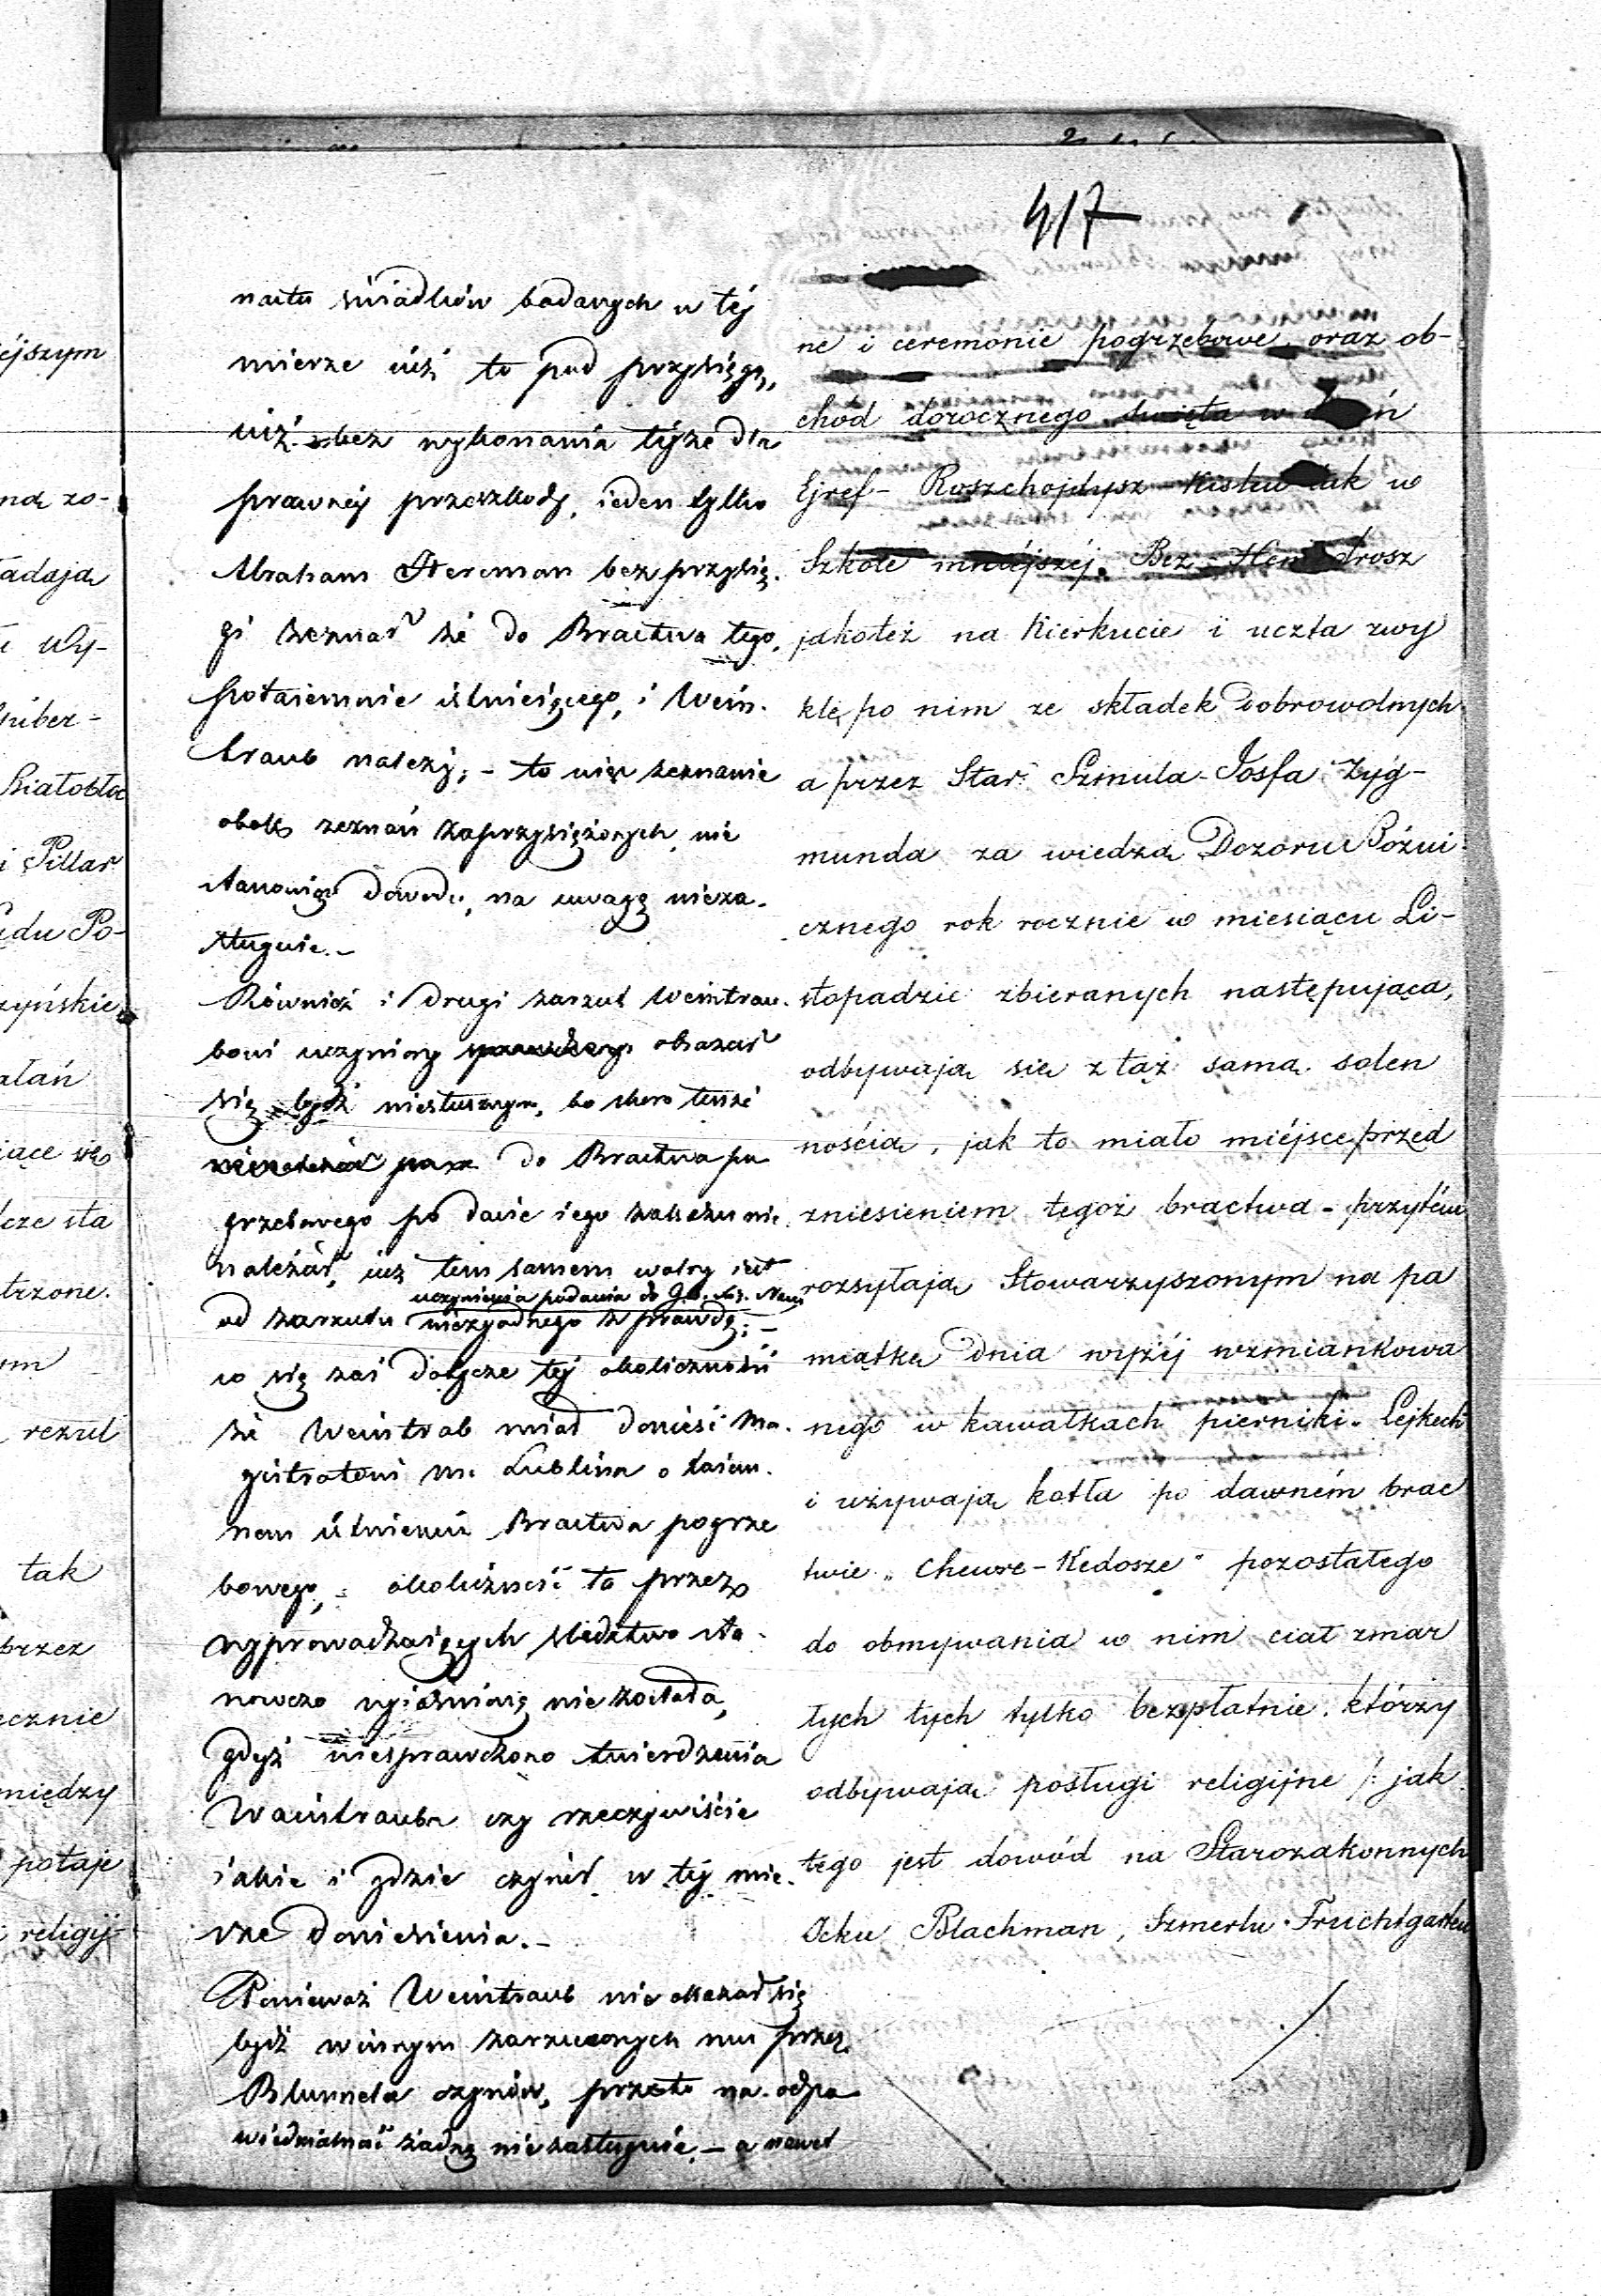 417
nastu świadków badanych w téj
mierze iuż to pod przysięgą,
iuż bez wykonania téjże dla
prawnéj przeszkody, ieden tylko
Abraham Hercman bez przysię-
gi zeznał że do Bractwa tego,
potaiemnie istnieiącego, i Wein-
traub należy; – to więc zeznanie
obok zeznań zaprzysiężonych, nie
stanowiąc dowodu, na uwagę nieza-
sługuie.–
Również i drugi zarzut Weintrau-
bowi uczyniony okazał
się bydź niesłusznym, bo skoro tenże
do Bractwa po
grzebowego po dacie iego zakazu nie
należał, iuż tem samem wolny iest
uczynienia podania do
od zarzutu niezgodnego z prawdą; –
co się zaś dotycze téj okoliczności
że Weintrab miał donieść Ma-
gistratowi m. Lublina o taiem-
nem istnieniu Bractwa pogrze
bowego, – okoliczność ta przez
wyprowadzaiących śledztwo sta-
nowczo wyiaśnioną nie została,
gdyż niesprawdzono twierdzenia
Waintrauba czy rzeczywiście
iakie i gdzie czynił w téj mie-
rze doniesienia.–
Ponieważ Weintraub nie okazał się
bydź winnym zarzuconych mu przez
Blumela czynów, przeto na odpo
wiedzialność żadną nie zasługuie, – a nawet
ne i ceremonie pogrzebowe, oraz ob-
chód dorocznego święta w dzień
Ejref – Roszchojdysz – Kislew tak w
Szkole mniéjszéj. Bez – Hemedrosz
jakoteż na Kierkucie i uczta zwy
kłę po nim ze składek dobrowolnych
a przez Star: Szmula – Josfa Zyg-
munda za wiedzą Dozoru Bóżni-
cznego rok rocznie w miesiącu Li-
stopadzie zbieranych następująca,
odbywają się z tąż samą solen
nością, jak to miało miéjsce przed
zniesieniem tegoż bractwa – przytém
rozsyłają Stowarzyszonym na pa
miątkę dnia wyżéj wzmiankowa
nego w kawałkach pierniki – Lejkech
i używają kotła po dawném brac
twie „Chewre – Kedosze" pozostałego
do obmywania w nim ciał zmar
łych tych tylko bezpłatnie, którzy
odbywają posługi religijne /: jak
tego jest dowód na Starozakonnych
Icku Blachman, Szmerlu Fruchtgarten
./.